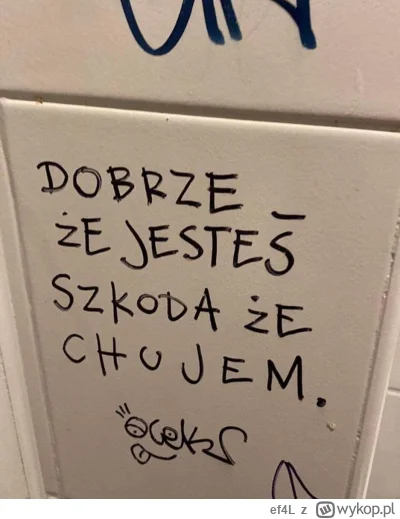 DOBRZE
ŻE JESTEŚ
SZKODA ŻE
CHUJEM.
ef4L z wykop.pl